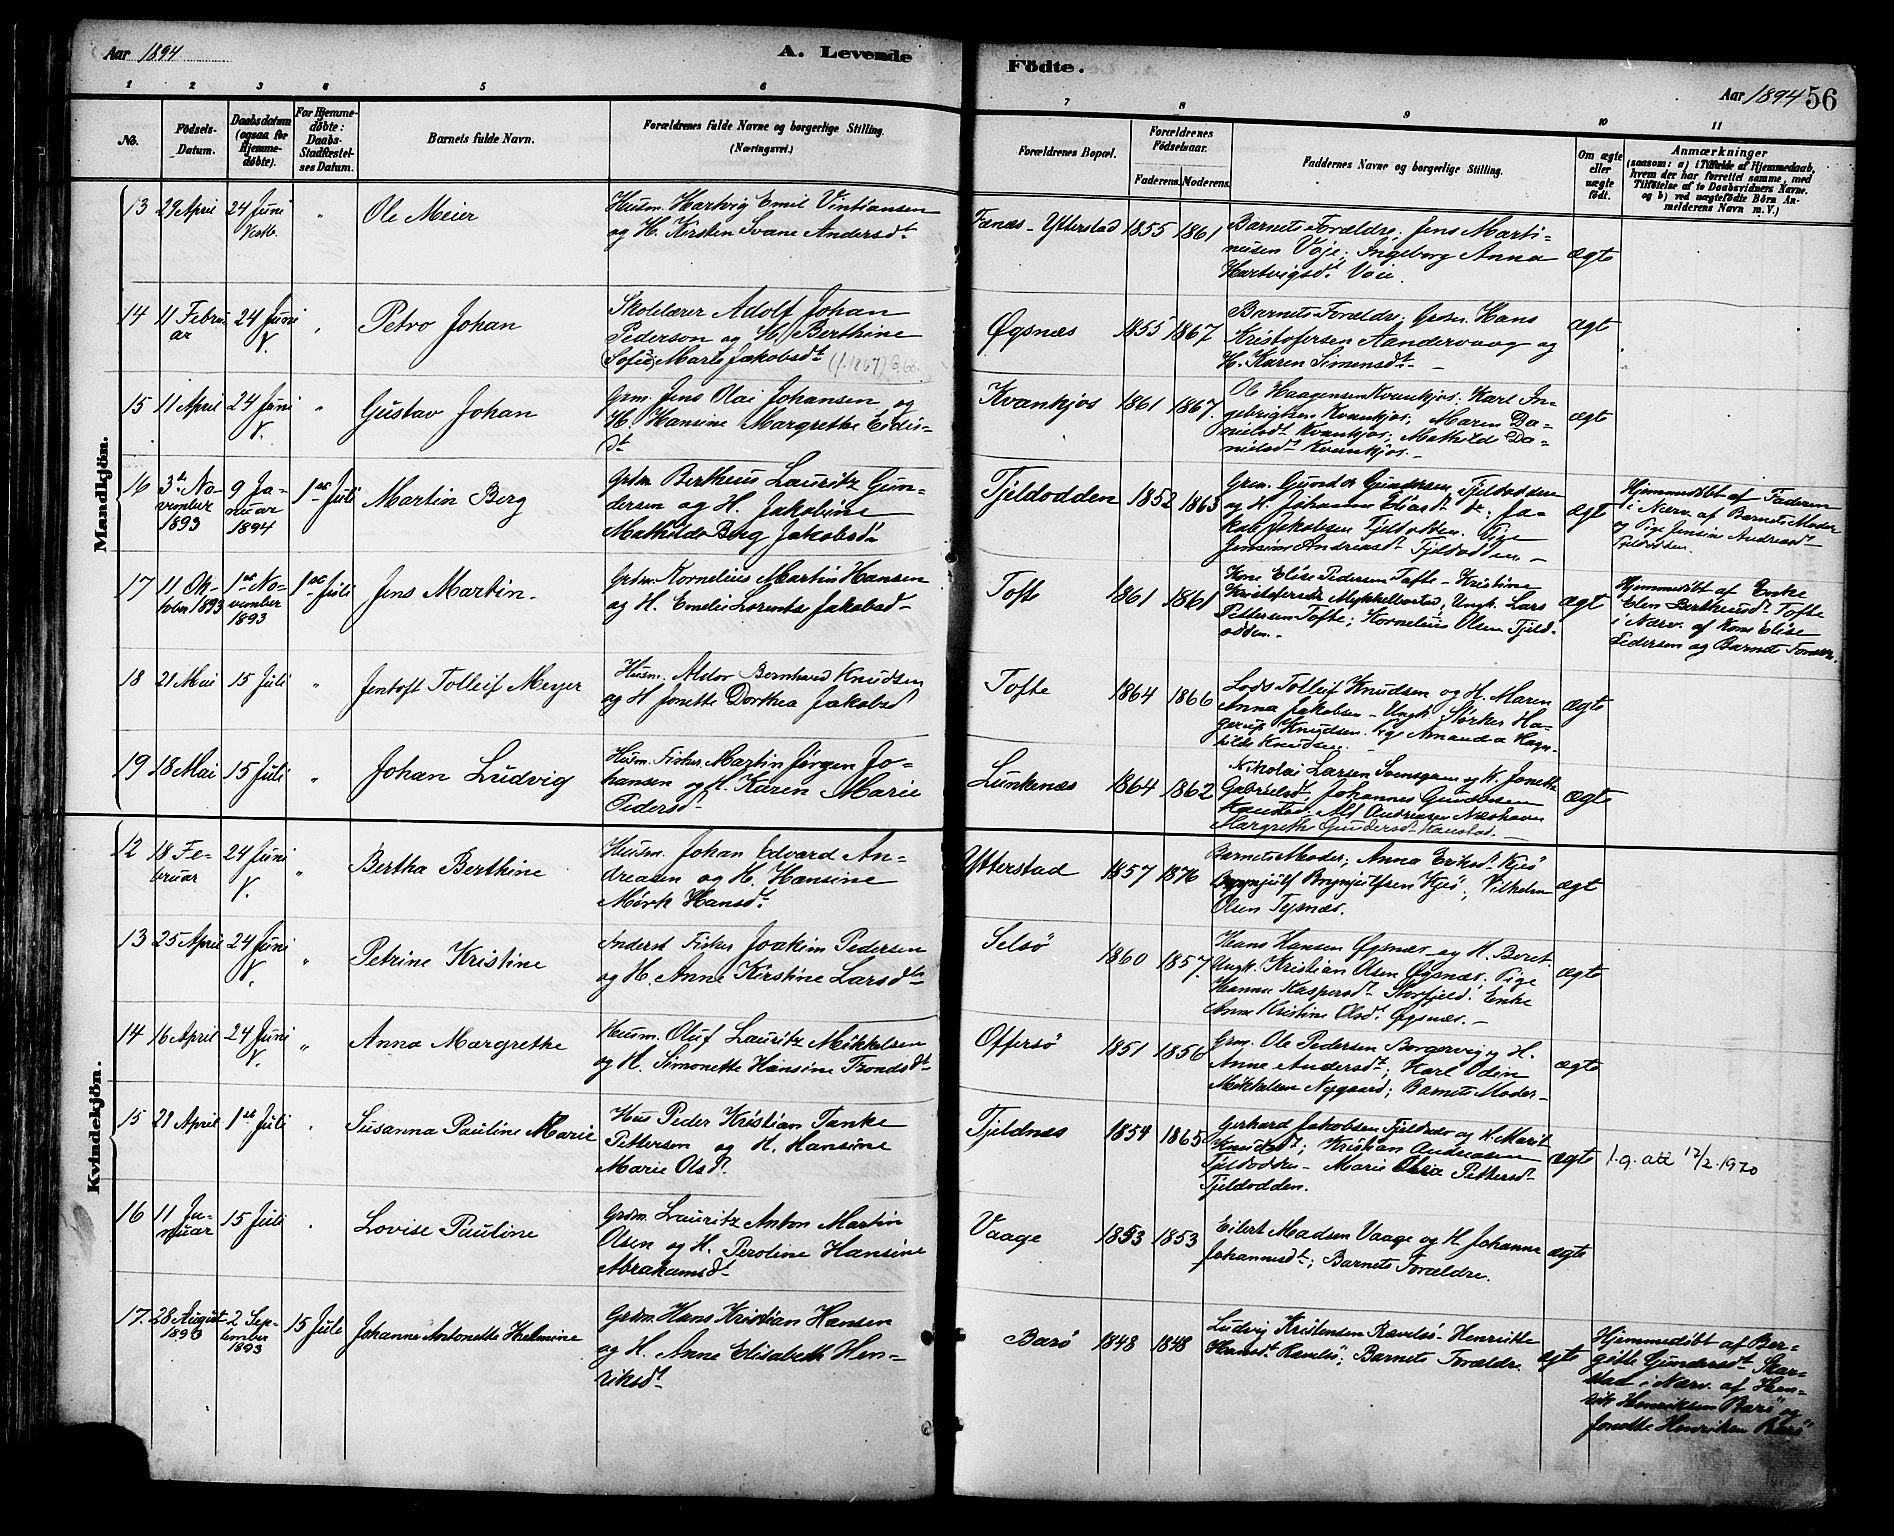 Aar 1894
A. Levende
Födte.
Aar 1894 56
1 2 3 4 5 6 7 8 9 10 11
No.
Födsels-
Datum.
Daabsdatum
(ogsaa for
Hjemme-
döbte).
For Hjemme-
døbte:
Daabs-
Stadfæstel-
ses Datum.
Barnets fulde Navn.
Forældrenes fulde Navne og borgerlige Stilling.
(Næringsvei.)
Forældrenes Bopæl.
Forældrenes
Födselsaar.
Faderens. Moderens.
Faddernes Navne og borgerlige Stilling.
Om ægte
eller
uægte
födt.
Anmærkninger
(saasom: a) i Tilfælde af Hjemmedaab,
hvem der har forrettet samme, med
Tilföielse af to Daabsvidners Navne,
og b) ved uægtefödte Börn An-
melderens Navn m. V.)
Mandkjön.
13 29 April 24 Juni " Ole Meier
Husm. Hartvig Emil Vintiansen
og H. Kirsten Svane Andersdt
Fanæs-Ytterstad 1855 1861
Barnets Forældre; Jens Marti-
niusen Voje; Ingeborg Anna
Hartvigsdt Voie
ægte
14 11 Febru
ar
24 Juni
V.
" Petro Johan
Skolelærer Adolf Johan
Pederson og H. Berthine
(Sofie) Marie Jakobsdt (f. 1867)
Øgsnæs 1855 1867
Barnets Forældre; Hans
Kristofersen Aandervaag og
H. Karen Simonsdt -
ægt
15 11 April 24 Juni
V.
" Gustav Johan
Grm. Jens Olai Johansen og
H. Hansine Margrethe Eidis-
dt
Kvankjos 1861 1867
Ole Haagensen Kvankjos. Karl In-
gebrigtsen Kvankjos; Maren Da-
nielsdt Kvankjos; Mathilde Da-
nielsdt Kvankjos. -
ægt
16 3die No-
vember
1893
9 Ja-
nuar
1894
1ste Juli Martin Berg
Grdm Bertheus Lauritz Gun-
dersen og H. Jakobine
Mathilde Berg Jakobsdt
Tjeldodden 1852 1863
Grm. Gunder Gundersen, Tjeldodden
og H. Johanna Eliasdt; Ja-
kob Jakobsen Tjeldodden. Pige
Jensine Andreasdt Tjeldodden -
ægt
Hjemmedöbt af Faderen
i Nærv. af Barnets Moder
og Pige Jensine Andreasdt
Tjeldodden.
17 11 Ok-
tober 1893
1ste No-
vember
1893
1ste Juli Jens Martin.
Grdm. Kornelius Martin Hansen
og H. Emelie Lorentse Jakobsd-
Tofte 1861 1861
Kone Elise Pedersen Tofte - Kristine
Kristofersdt Mykkelbostad; Ungk. Lars
Pettersen Tofte; Kornelius Olsen Tjeld-
odden.-
ægt
Hjemmedöbt af Enke
Elen Bertheusdt Tofte
i Nærv. af Kone Elise
Pedersen og Barnets Forældre.
18 21 Mai 15 Juli " Jentoft Tolleif Meyer
Husm. Aldor Bernhard Knudsen
og H Jonette Dorthea Jakobsd
Tofte 1864 1866
Lods Tolleif Knudsen og H. Maren
Anna Jakobsen - Ungk Størker Ha-
gerup Knudsen. Pige Amanda Ragn-
hilde Knudsen.
ægte
19 18 Mai 15 Juli " Johan Ludvig
Husm. Fisker Martin Jørgen Jo-
hansen og H. Karen Marie
Pedersd-
Lunkenæs 1864 1862
Nikolai Larsen Svensgam og H. Jonette
Gabrielsdt Johannes Gundersen
Kanstad Alf Andreasen Næshavn
Margrethe Gundersdt Kanstad. -
ægte
Kvindekjön.
12 18 Fe-
bruar
24 Juni
V.
" Bertha Berthine
Husm. Johan Edvard An-
dreasen og H. Hansine
Mørk Hansdt.
Ytterstad 1857 1876
Barnets Moder; Anna Eriksdt Kjeö
Brynjulf Brynjulfsen Kjeö; Vilhelm
Olsen Tejsnæs.
ægt
13 25 April 24 Juni
V.
" Petrine Kristine
Anderst Fisker Joakim Pedersen
og H. Anne Kirstine Larsdtr
Selsö 1860 1857
Hans Hansen Øgsnæs og H. Beret.
Ungk. Kristian Olsen Øgsnæs. Pige
Hanna Kaspersdt Storfjeld. Enke
Anne Kristine Olsdt Øgsnæs. -
ægte
14 16 April 24 Juni
V.
" Anna Margrethe
Husm. Oluf Lauritz Mikkelsen
og H. Simonette Hansine Trondsdt
Offersö 1851 1856
Grm. Ole Pedersen Borgervig og H.
Anne Andersdt; Karl Odin
Mikkelsen Nygaard; Barnets Moder-
ægte
15 21 April 1ste Juli " Susanna Pauline Marie
Hus Peder Kristian Tanke
Pettersen og H. Hansine
Marie Olsd.
Tjeldnæs 1854 1865
Gerhard Jakobsen Tjeldnæs og H. Marit
Knudsdt; Kristian Andreasen
Tjeldodden - Marie Olea Pettersdt
Tjeldodden.
ægte 1.g. att 17/2.1970
16 11 Ja-
nuar
15 Juli " Lovise Pauline
Grdm. Lauritz Anton Martin
Olsen og H. Peroline Hansine
Abrahamsdt
Vaage 1853 1853
Eilert Madsen Vaage og H Johanne
Johannesdt; Barnets Forældre.
ægte
17. 28 August
1893
2 Sep-
tember
1893
15 Juli Johanne Antonette Helmine
Grdm. Hans Kristian Hansen
og H. Anne Elisabeth Hen-
riksdt
Barö 1848 1848
Ludvig Kristensen Rævelsö - Henrikke
Hansdt Rævelsö; Barnets Forældre.
ægte
Hjemmedöbt af Ber-
gitte Gundersdt Skar-
stad i Nærv. af Hen-
rik Henriksen Barö og
Jonette Henriksen Barö